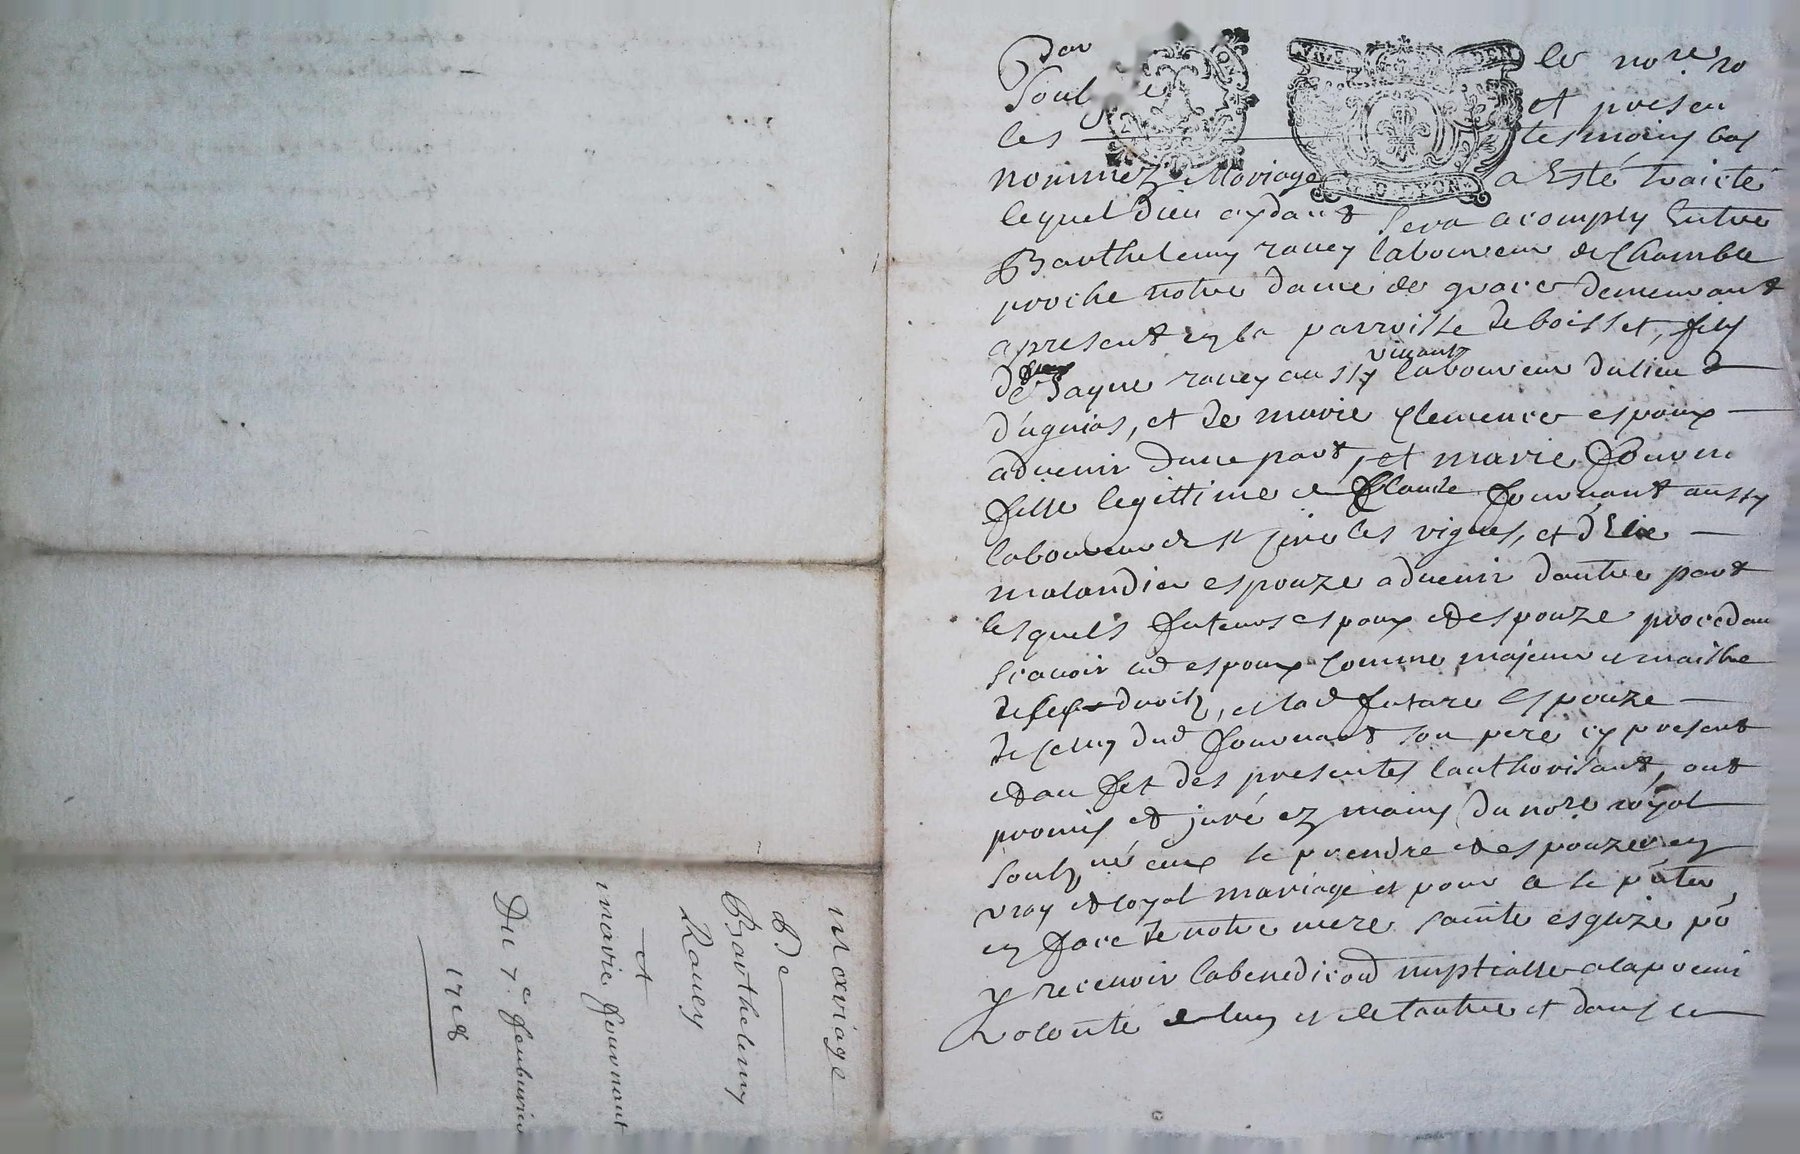 mariage
De
Barthelemy
Rauey
et
marie fournant
Du 7e feubvrier
1718
Par le nore ro
soub et presen
les tesmoins bas
nommez Mariage a Esté traicté
lequel dieu aydant sera acomply Entre
Barthelemy rauey laboureur de Chamble
proche notre dame de grace demeurant
apresent en la parroisse de boisset, fils
de rauey aussy vivant laboureur du lieu
et de marie Clemence espoux
aduenir dune part, et marie fourn
fille legittime de Claude fournant aussy
laboureur de st Cire les vignes, et d'
malandier espouze aduenir dautre part
lesquels futeurs espoux et espouze procedan
scauoir led espoux comme majeur et maistre
de ses droits, et lad future espouze
de celuy dud fournant son pere cy present
et au fet des presentes lauthorisant, ont
promis et juré ez mains du nore royal
soubz né eux se prendre et espouzer en
vray et loyal mariage et pour ce se
en face de notre mere sainte esglize po
y recevoir la benediccōn nuptialle a la premi
volonté de luy et de lautre et dans ce
LYON
DEN